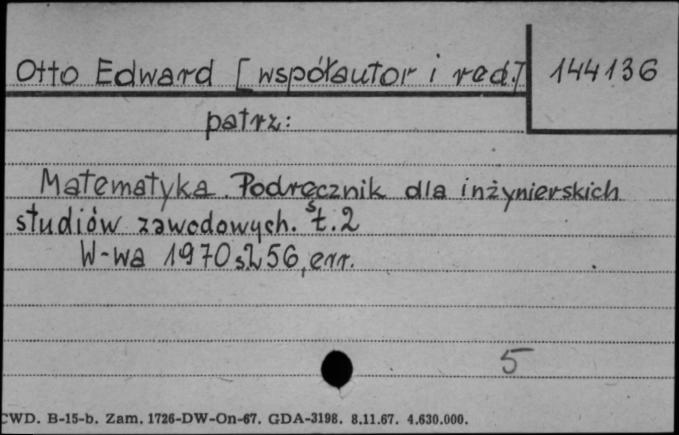 Otto Edward [współautor i red.] 144136
patrz:
Matematyka. Podręcznik dla inżynierskich
studiów zawodowych. t.2
W-wa 1970 s.256, err.
5
CWD. B-15-b. Zam. 1726-DW-On-67. GDA-3198. 8.11.67. 4.630.000.